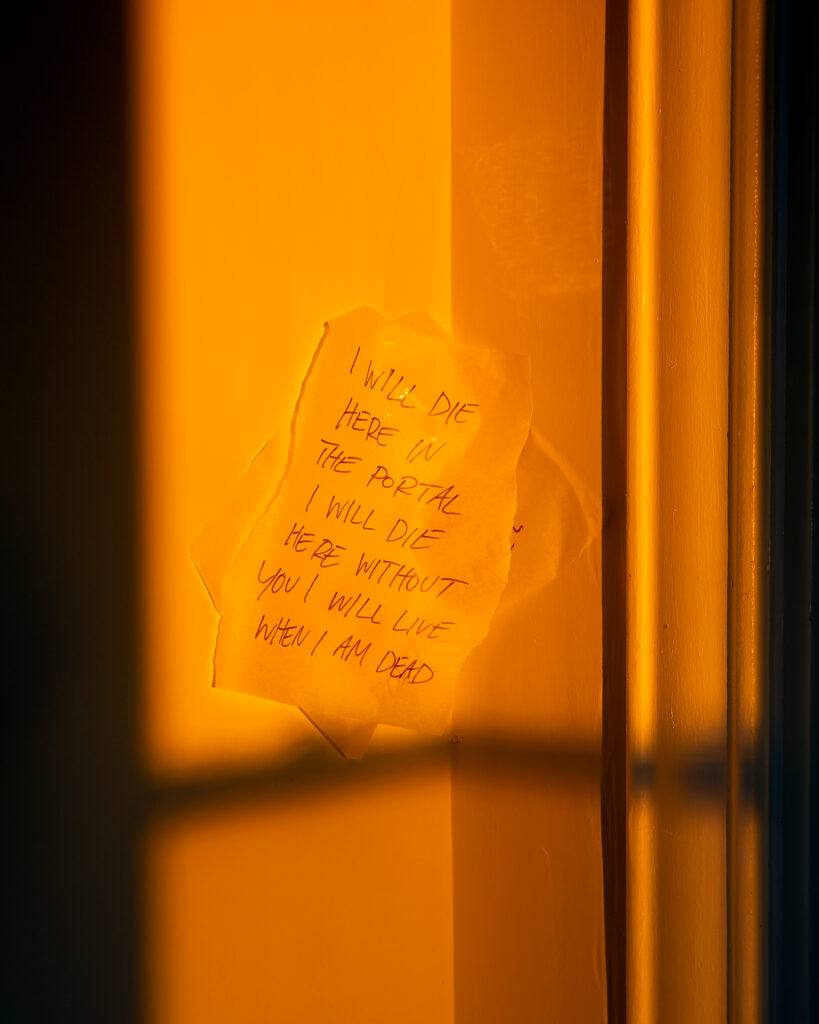 I WILL DIE
HERE IN
THE PORTAL
I WILL DIE
HERE WITHOUT
YOU I WILL LIVE
WHEN I AM DEAD